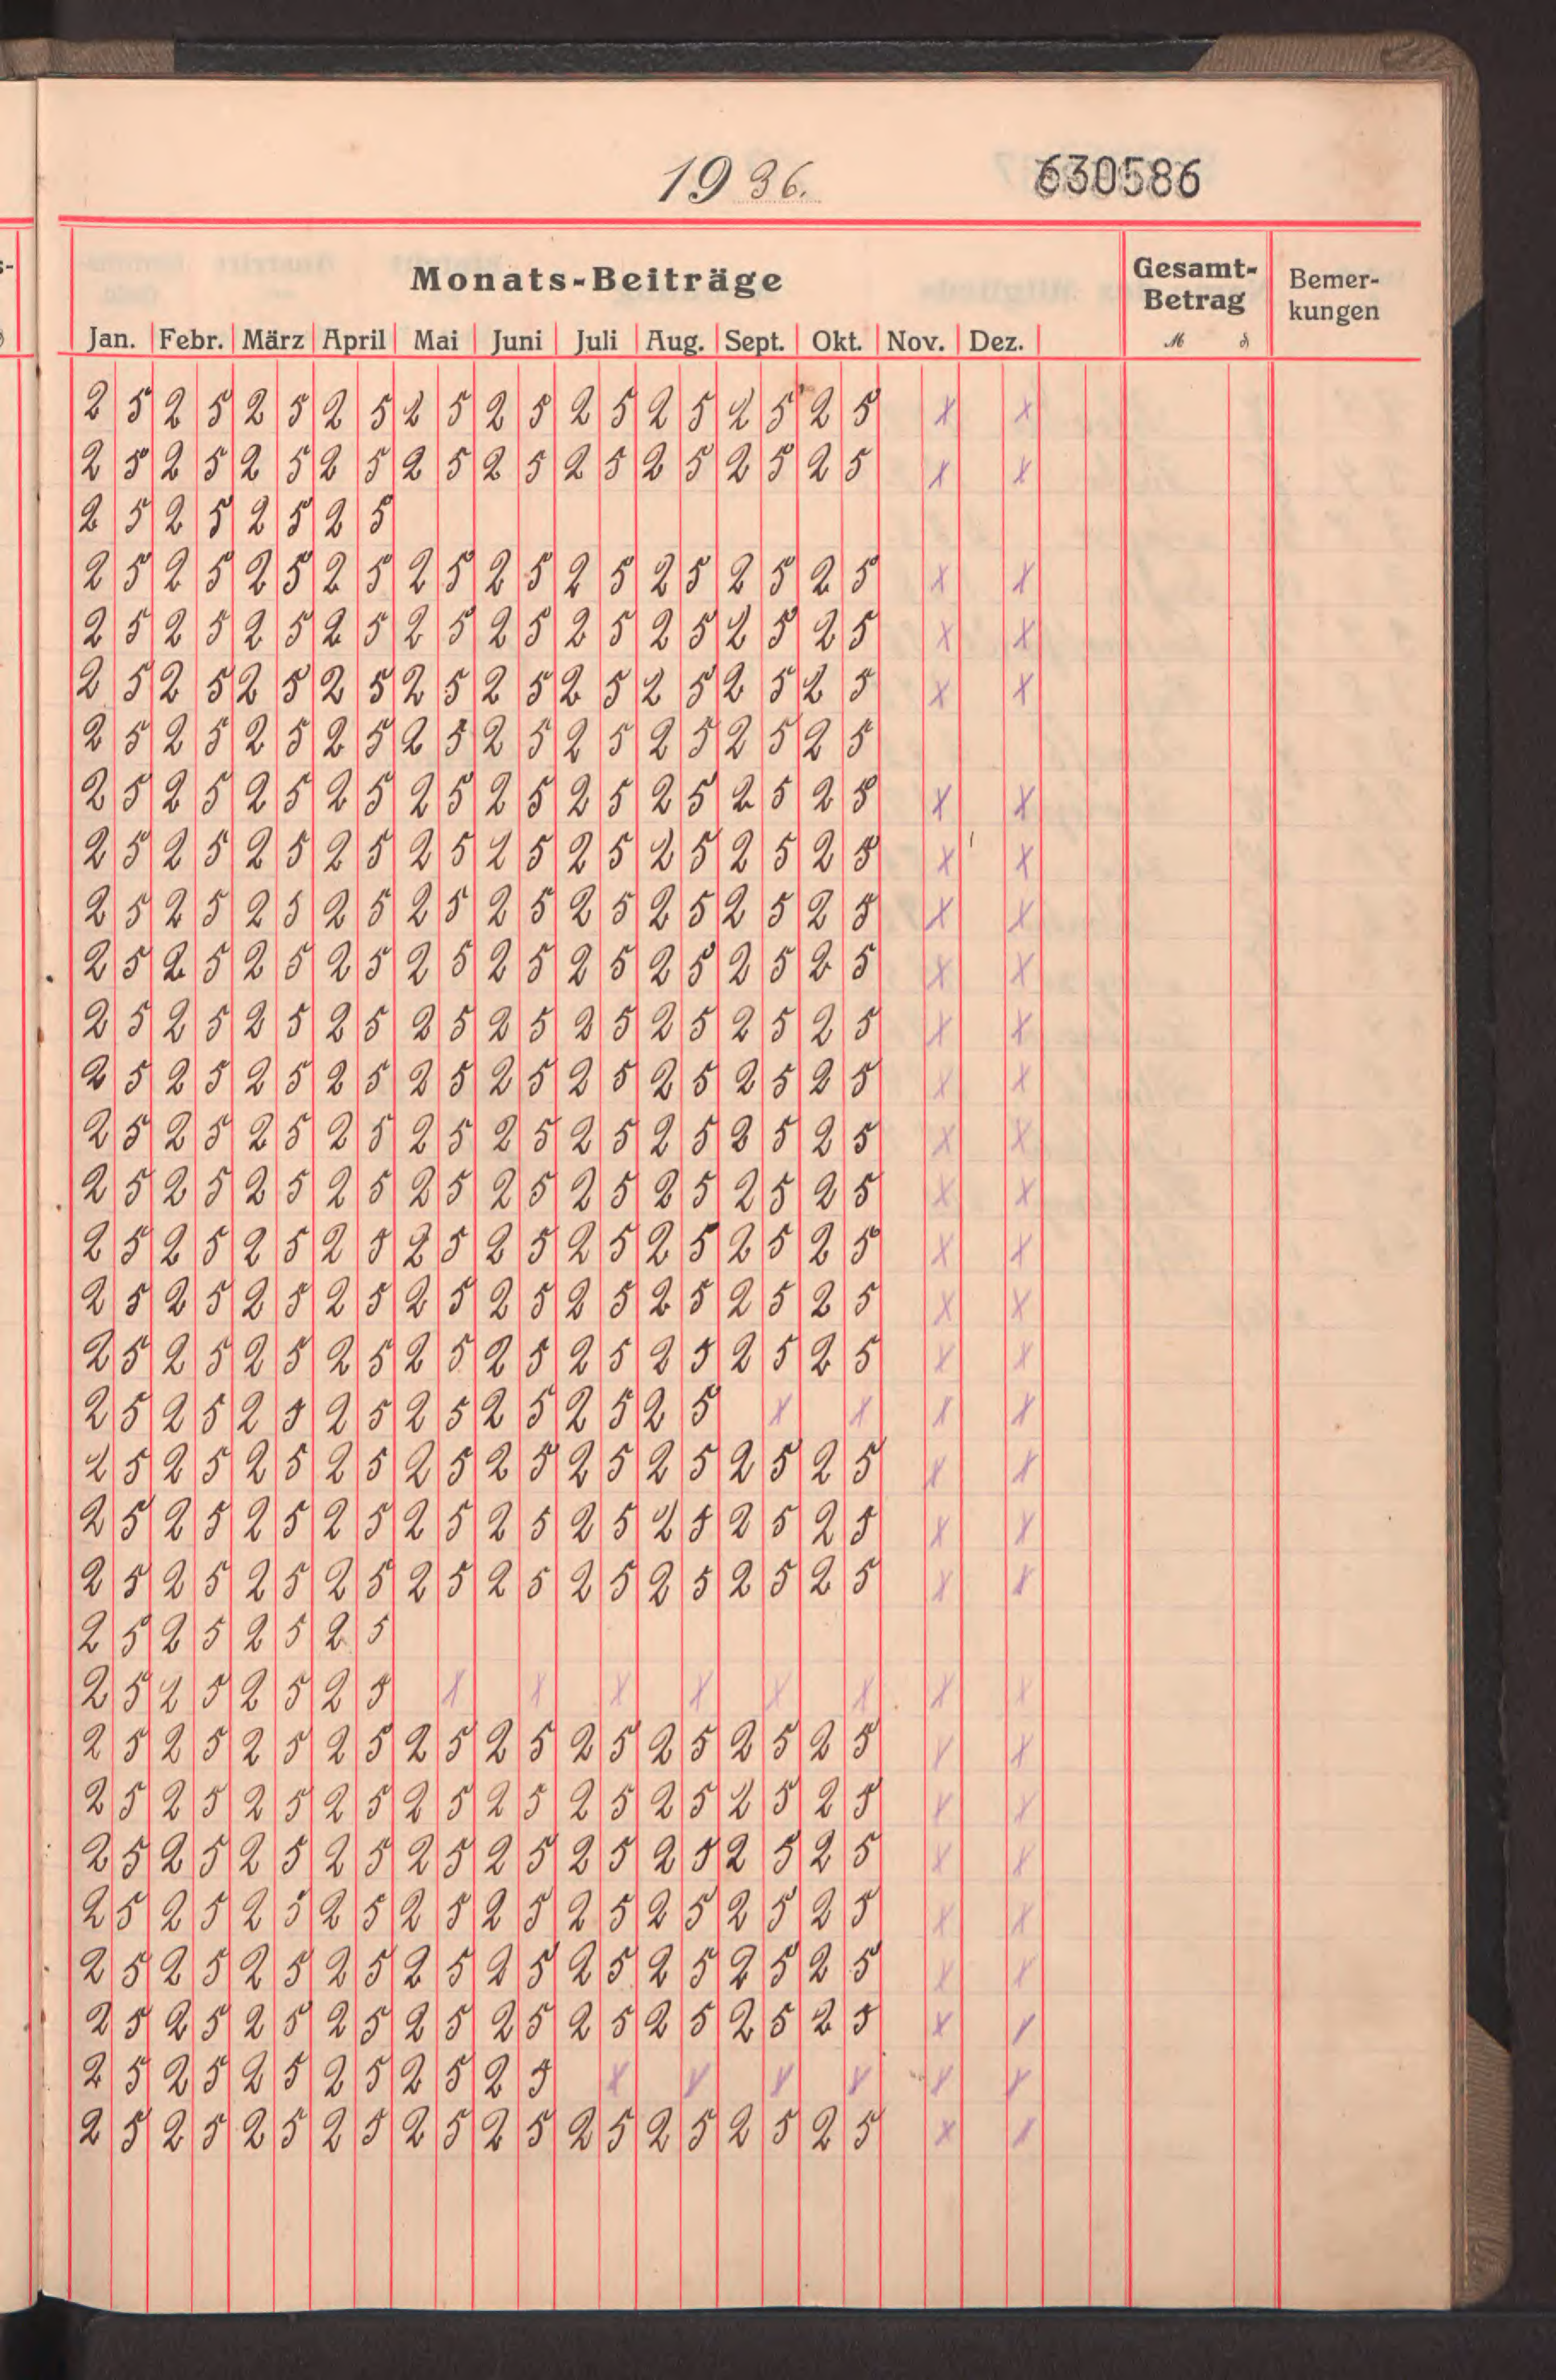 1936.
630586
Monats-Beiträge
Gesamt-
Betrag
Bemer-
kungen
Jan. Febr. März April Mai Juni Juli Aug. Sept. Okt. Nov. Dez. M ₰
25 25 25 25 25 25 25 25 25 25 x x
25 25 25 25 25 25 25 25 25 25 x x
25 25 25 25
25 25 25 25 25 25 25 25 25 25 x x
25 25 25 25 25 25 25 25 25 25 x x
25 25 25 25 25 25 25 25 25 25 x x
25 25 25 25 25 25 25 25 25 25
25 25 25 25 25 25 25 25 25 25 x x
25 25 25 25 25 25 25 25 25 25 x x
25 25 25 25 25 25 25 25 25 25 x x
25 25 25 25 25 25 25 25 25 25 x x
25 25 25 25 25 25 25 25 25 25 x x
25 25 25 25 25 25 25 25 25 25 x x
25 25 25 25 25 25 25 25 25 25 x x
25 25 25 25 25 25 25 25 25 25 x x
25 25 25 25 25 25 25 25 25 25 x x
25 25 25 25 25 25 25 25 25 25 x x
25 25 25 25 25 25 25 25 25 25 x x
25 25 25 25 25 25 25 25 x x x x
25 25 25 25 25 25 25 25 25 25 x x
25 25 25 25 25 25 25 25 25 25 x x
25 25 25 25 25 25 25 25 25 25 x x
25 25 25 25
25 25 25 25 x x x x x x x x
25 25 25 25 25 25 25 25 25 25 x x
25 25 25 25 25 25 25 25 25 25 x x
25 25 25 25 25 25 25 25 25 25 x x
25 25 25 25 25 25 25 25 25 25 x x
25 25 25 25 25 25 25 25 25 25 x x
25 25 25 25 25 25 25 25 25 25 x x
25 25 25 25 25 25 x x x x x x
25 25 25 25 25 25 25 25 25 25 x x